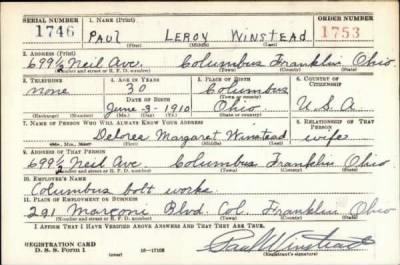 SERIAL NUMBER 1. NAME (Print) ORDER NUMBER
1746 PAUL LEROY WINSTEAD 1753
(First) (Middle) (Last)
2. ADDRESS (Print)
699½ Neil Ave. Columbus Franklin Ohio.
(Number and street or R. F. D. number) (Town) (County) (State)
3. TELEPHONE 4. AGE IN YEARS 5. PLACE OF BIRTH 6. COUNTRY OF CITIZENSHIP
none 30 Columbus
DATE OF BIRTH (Town or county)
June-3-1910 Ohio. U.S.A.
(Mo.) (Day) (Yr.) (State or country)
7. NAME OF PERSON WHO WILL ALWAYS KNOW YOUR ADDRESS 8. RELATIONSHIP OF THAT PERSON
Delores Margaret Winstead wife
(First) (Middle) (Last)
9. ADDRESS OF THAT PERSON
699½ Neil Ave. Columbus Franklin Ohio
(Number and street or R. F. D. number) (Town) (County) (State)
10. EMPLOYER'S NAME
Columbus bolt works.
11. PLACE OF EMPLOYMENT OR BUSINESS
291 Marconi Blvd. Col. Franklin Ohio
(Number and street or R. F. D. number) (Town) (County) (State)
I AFFIRM THAT I HAVE VERIFIED ABOVE ANSWERS AND THAT THEY ARE TRUE.
REGISTRATION CARD
D. S. S. Form 1 (over) Paul Winstead